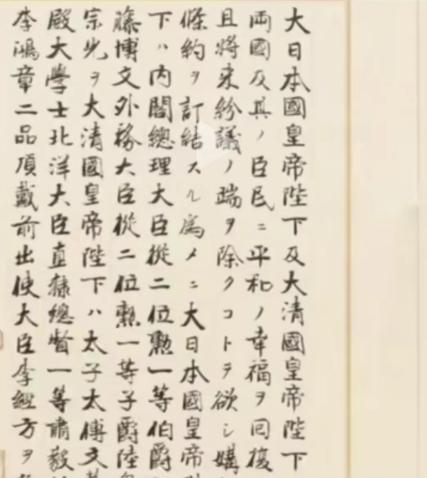 大日本國皇帝陛下及大清國皇帝陛下
両國及其ノ臣民ニ平和ノ幸福ヲ回復
且將来紛議ノ端ヲ除クコトヲ欲シ媾
條約ヲ訂結スル為メニ大日本國皇帝
下ハ内閣總理大臣從二位勲一等伯爵
藤博文外務大臣從二位勲一等子爵陸
宗光ヲ大清國皇帝陛下ハ太子太傅文
殿大學士北洋大臣直隷總督一等肅毅
李鴻章二品頂戴前出使大臣李經方ヲ